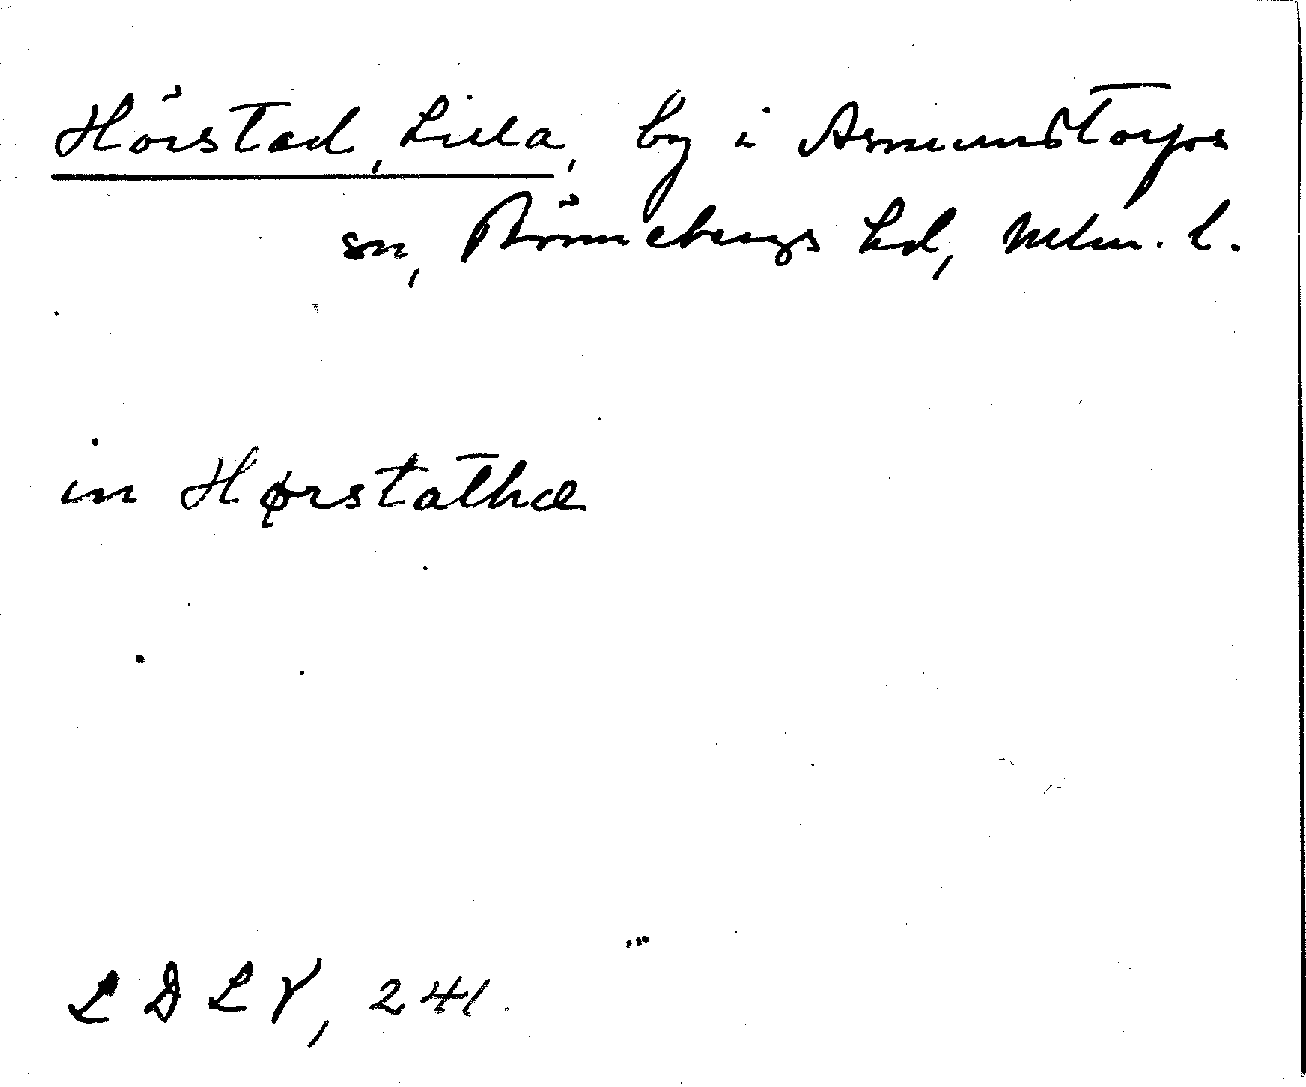 Hörstad, Lilla, by i Asmundtorps
sn, Rönnebergs hd, Mlm. l.
in Hørstathæ
LDLV, 241.